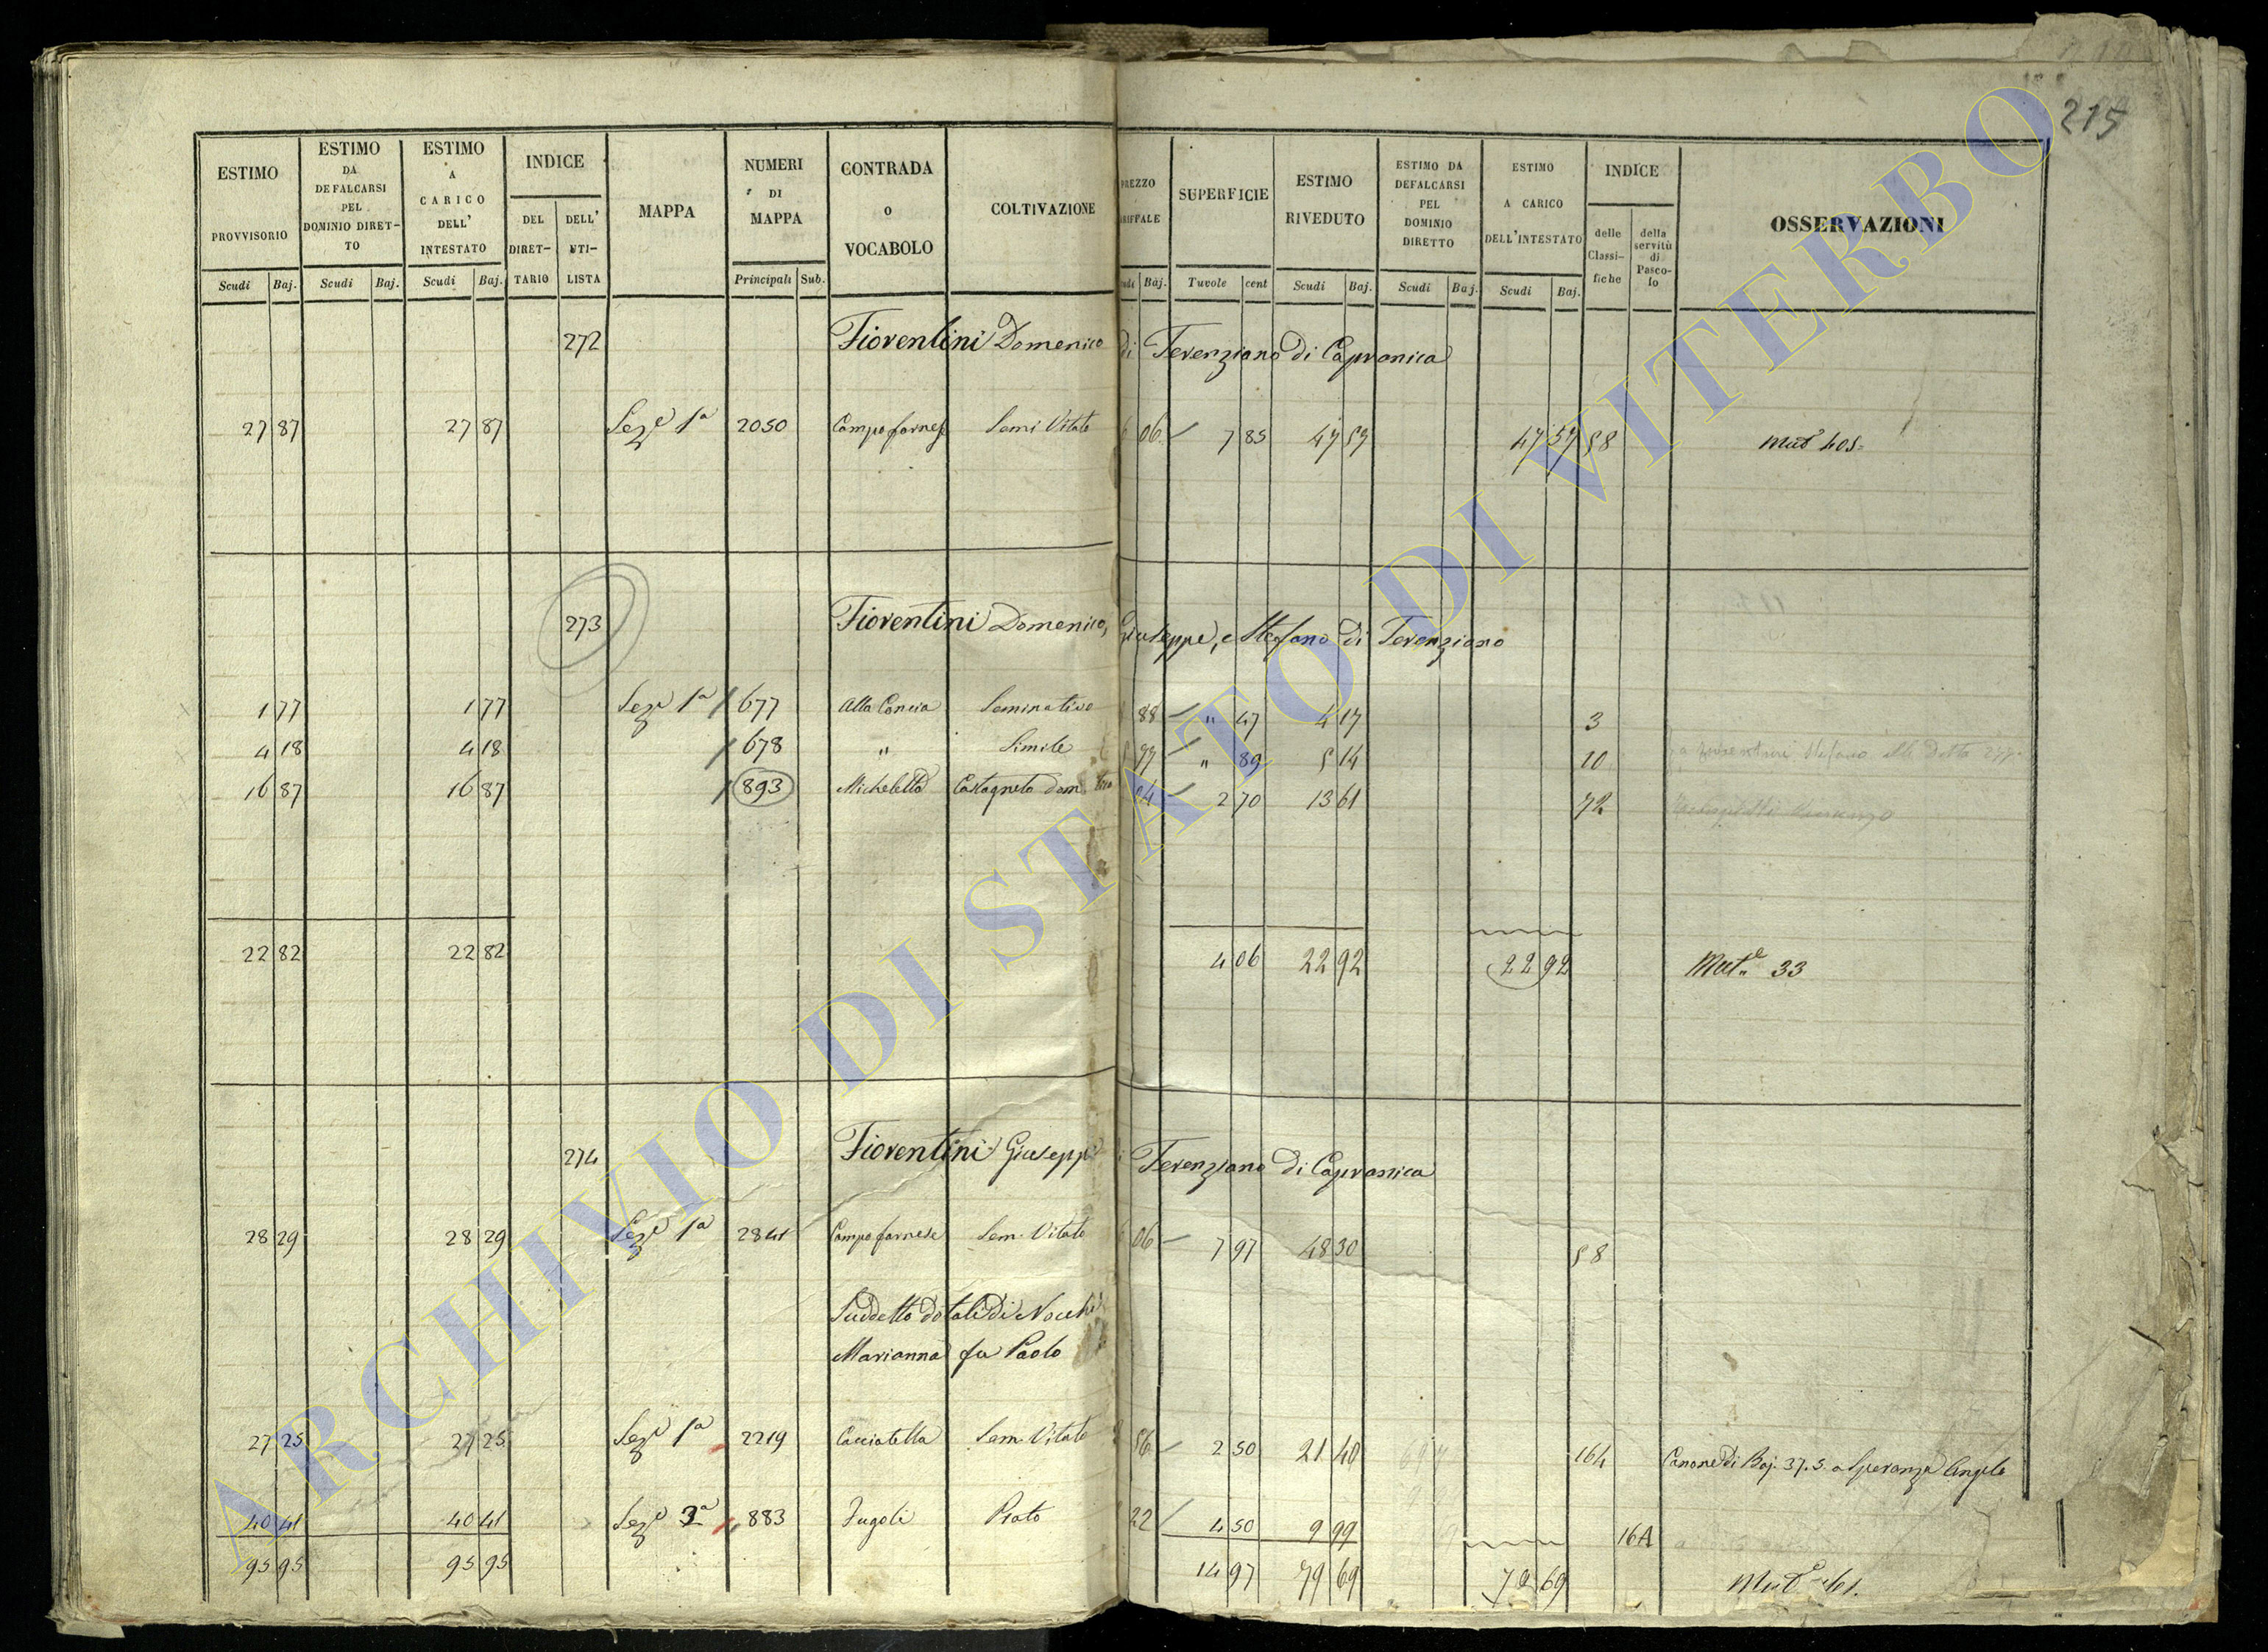 215
ESTIMO PROVVISORIO | ESTIMO DA DEFALCARSI PEL DOMINIO DIRETTO | ESTIMO A CARICO DELL' INTESTATO | INDICE | MAPPA | NUMERI DI MAPPA | CONTRADA O VOCABOLO | COLTIVAZIONE | PREZZO | SUPERFICIE | ESTIMO RIVEDUTO | ESTIMO DA DEFALCARSI PEL DOMINIO DIRETTO | ESTIMO A CARICO DELL'INTESTATO | INDICE | OSSERVAZIONI
DEL DIRETTARIO | DELL' UTILISTA | delle Classifiche | della servitù di Pascolo
Scudi | Baj. | Scudi | Baj. | Scudi | Baj. | Principali | Sub. | Baj. | Tavole | cent | Scudi | Baj. | Scudi | Baj. | Scudi | Baj.
272 Fiorentini Domenico di Terenziano di Capranica
27 87 | 27 87 | Seze 1a | 2050 | Campofarnese | Semi Vitato | 06 | 7 85 | 47 57 | 47 57 | 58 | Mut 405
273 Fiorentini Domenico, Giuseppe, e Stefano di Terenziano
1 77 | 1 77 | Seze 1a | 677 | Alla Concia | Seminativo | 88 | " 47 | 4 17 | 3
4 18 | 4 18 | 678 | " | Simile | 5 77 | " 89 | 5 14 | 10
16 87 | 16 87 | 893 | Micheletto | Castagneto dom | 04 | 2 70 | 13 61 | 72
22 82 | 22 82 | 4 06 | 22 92 | 22 92 | Mut.e 33
274 Fiorentini Giuseppe di Terenziano di Capranica
28 29 | 28 29 | Seze 1a | 2841 | Campofarnese | Sem. Vitato | 06 | 7 97 | 48 30 | 58
Suddetto dotali di Nocchi
Marianna fu Paolo
27 25 | 27 25 | Seze 1a | 2219 | Cacciatella | Sem. Vitato | 56 | 2 50 | 21 40 | 164 | Canone di Baj. 37.5. a Speranza Angelo
40 41 | 40 41 | Seze 3a | 883 | Jugoli | Prato | 22 | 4 50 | 9 99 | 16A
95 95 | 95 95 | 14 97 | 79 69 | 79 69
ARCHIVIO DI STATO DI VITERBO